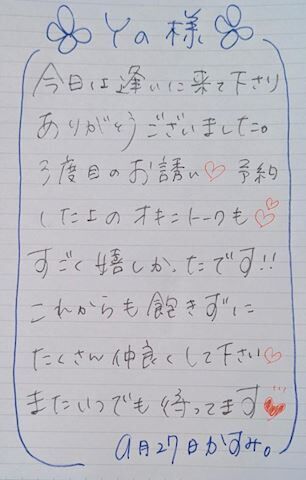 Ya様
今日は逢いに来て下さり
ありがとうございました。
3度目のお誘い♡予約
した上のオキニトークも♡♡
すごく嬉しかったです!!
これからも飽きずに
たくさん仲良くして下さい♡
またいつでも待ってます♥
9月27日かすみ。